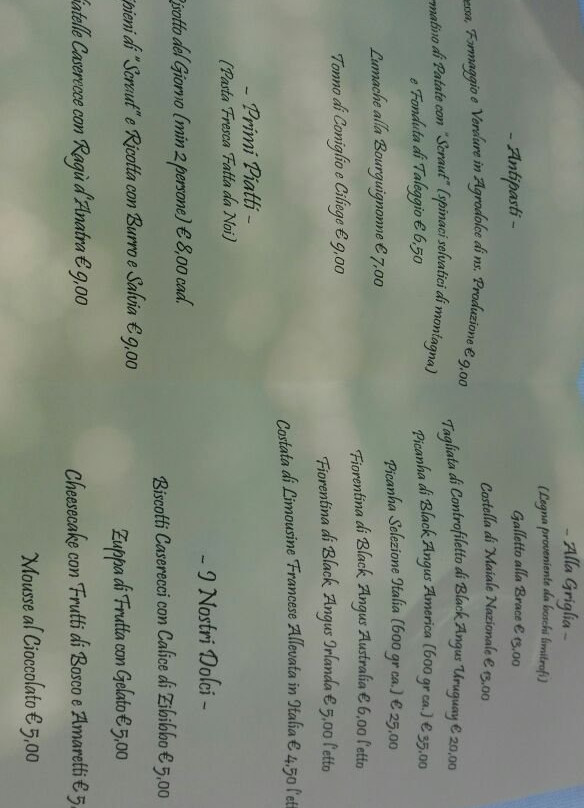 - Antipasti -
Formaggio e Verdure in Agrodolce di ns. Produzione € 9,00
di Patate con "Scraut" (spinaci selvatici di montagna)
e Fonduta di Taleggio € 6,50
Lumache alla Bourguignonne € 7,00
Tonno di Coniglio e Ciliege € 9,00
- Primi Piatti -
(Pasta Fresca Fatta da Noi)
del Giorno (min 2 persone) € 8,00 cad.
di "Scraut" e Ricotta con Burro e Salvia € 9,00
Caserecce con Ragù d'Anatra € 9,00
- Alla Griglia -
(Legna proveniente da boschi limitrofi)
Galletto alla Brace € 13,00
Costella di Maiale Nazionale € 13,00
Tagliata di Controfiletto di Black Angus Uruguay € 20,00
Picanha di Black Angus America (600 gr ca.) € 35,00
Picanha Selezione Italia (600 gr ca.) € 25,00
Fiorentina di Black Angus Australia € 6,00 l'etto
Fiorentina di Black Angus Irlanda € 5,00 l'etto
Costata di Limousine Francese Allevata in Italia € 4,50
- I Nostri Dolci -
Biscotti Caserecci con Calice di Zibibbo € 5,00
Zuppa di Frutta con Gelato € 5,00
Cheesecake con Frutti di Bosco e Amaretti € 5,
Mousse al Cioccolato € 5,00